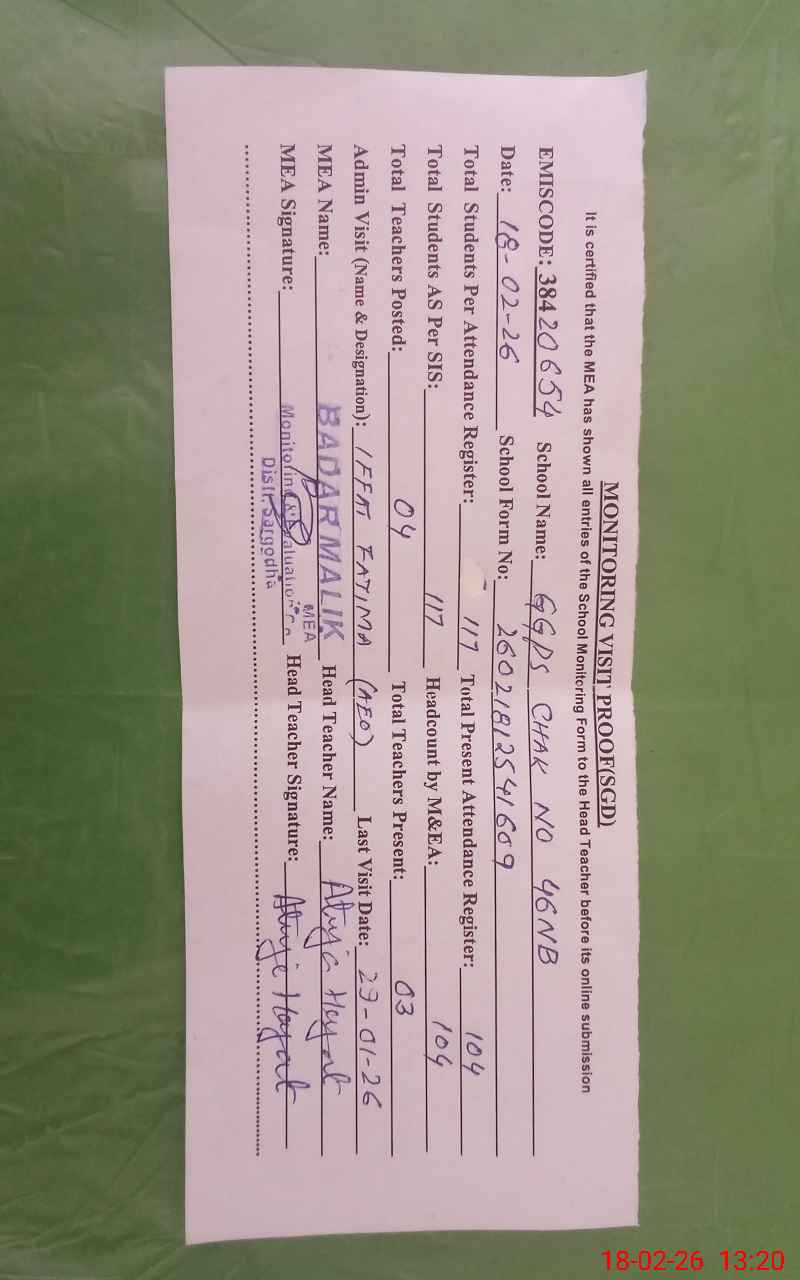 MONITORING VISIT PROOF(SGD)
It is certified that the MEA has shown all entries of the School Monitoring Form to the Head Teacher before its online submission
EMISCODE: 38420654 School Name: GGPS CHAK NO 46NB
Date: 18-02-26 School Form No: 26021812541609
Total Students Per Attendance Register: 117 Total Present Attendance Register: 104
Total Students AS Per SIS: 117 Headcount by M&EA: 104
Total Teachers Posted: 04 Total Teachers Present: 03
Admin Visit (Name & Designation): IFFAT FATIMA (AEO) Last Visit Date: 29-01-26
MEA Name: BADAR MALIK Head Teacher Name: Atiya Hayat
MEA
MEA Signature: Monitoring Head Teacher Signature: Atiya Hayat
Distt. Sargodha
18-02-26 13:20